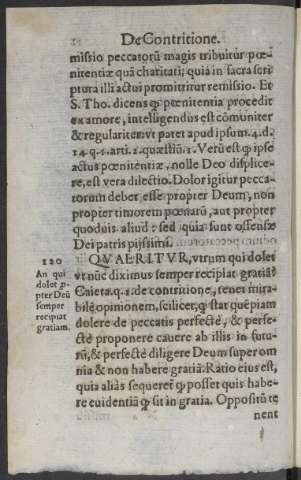 De Contritione.
missio peccatorũ magis tribuitur pœ-
nitentiæ quã charitati; quia in sacra scri
ptura illi actui promittitur remissio. Et
S. Tho. dicens ꝙ pœnitentia procedit
ex amore, intelligendus est cõmuniter
& regulariter: vt patet apud ipsum. 4. d.
14. q. 1. arti. 2. quæstiũ. 1. Verũ est ꝙ ipse
actus pœnitentiæ, nolle Deo displice-
re, est vera dilectio. Dolor igitur pecca-
torum deber esse propter Deum, non
propter timorem pœnarũ, aut propter
quoduis aliud: sed quia sunt offensæ
Dei patris pijssimi.
120
An qui
dolet ꝓ-
pter Deũ
semper
recipiat
gratiam.
QVAERITVR, vtrum qui dolet
vt nũc diximus semper recipiat gratiã?
Caieta. q. 1. de contritione, tenet mira-
bilẽ opinionem, scilicet, ꝙ stat quẽpiam
dolere de peccatis perfectè, & perfe-
ctè proponere cauere ab illis in futu-
rũ, & perfectè diligere Deum super om
nia & non habere gratiã: Ratio eius est,
quia aliàs sequeret̃ ꝙ posset quis habe-
re euidentiã ꝙ sit in gratia. Oppositũ te
nent